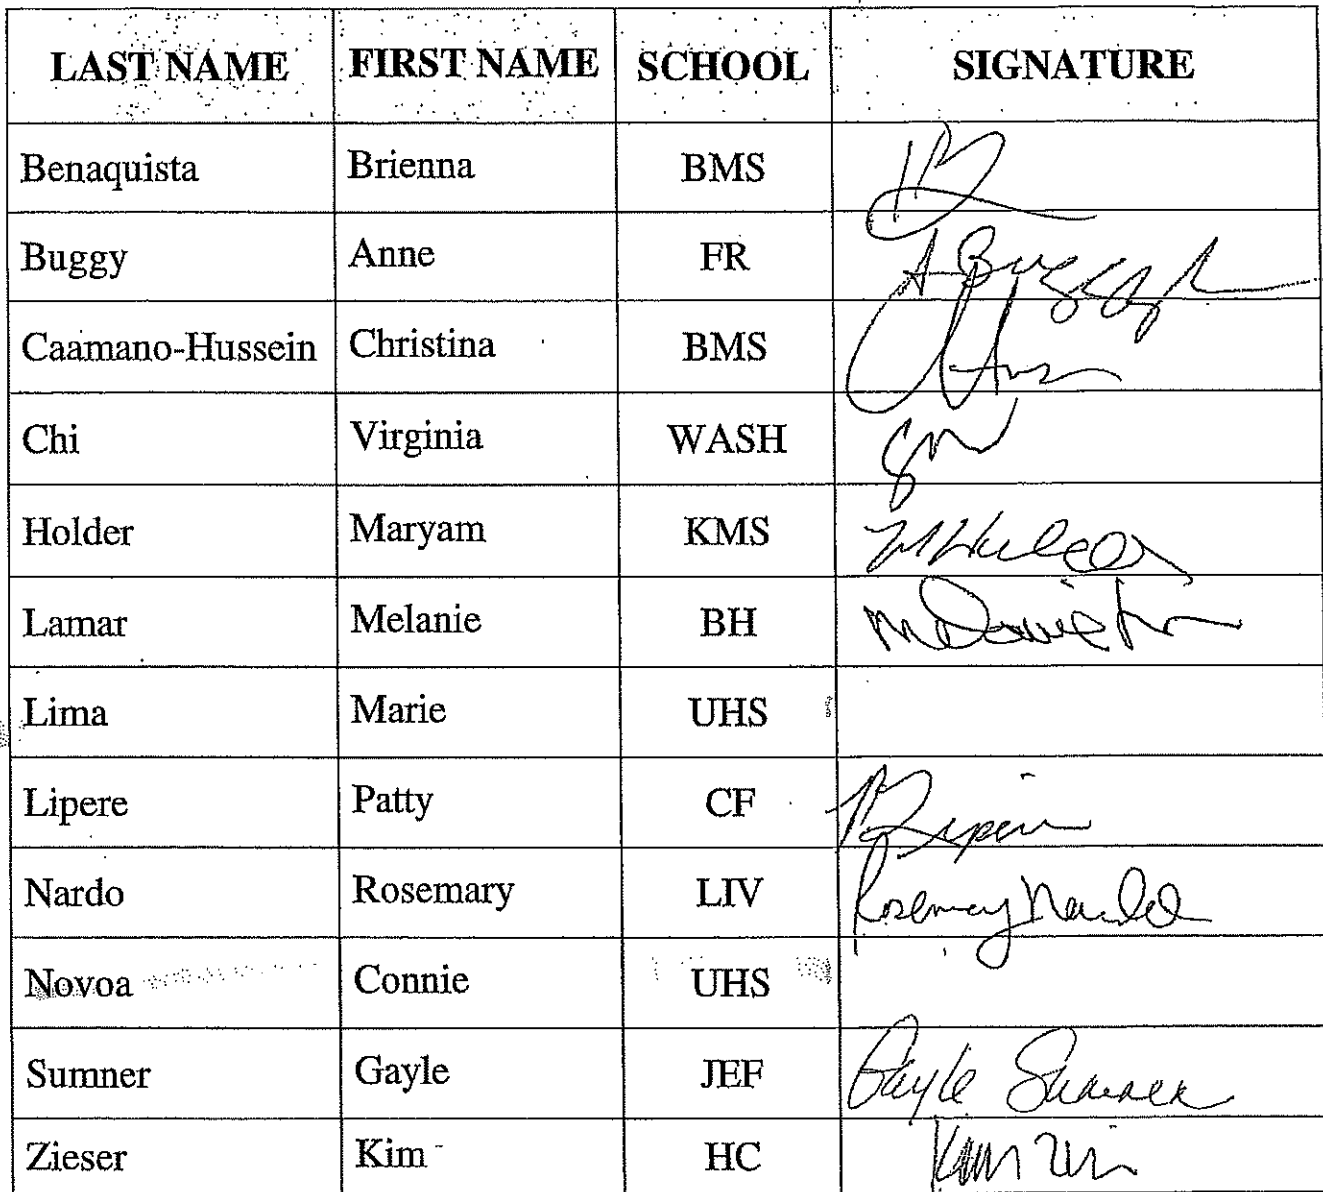 LAST NAME FIRST NAME SCHOOL SIGNATURE
Benaquista Brienna BMS
Buggy Anne FR A Buggy
Caamano-Hussein Christina BMS
Chi Virginia WASH
Holder Maryam KMS M Holder
Lamar Melanie BH Melanie
Lima Marie UHS
Lipere Patty CF
Nardo Rosemary LIV Rosemary Nardo
Novoa Connie UHS
Sumner Gayle JEF Gayle Sumner
Zieser Kim HC Kim